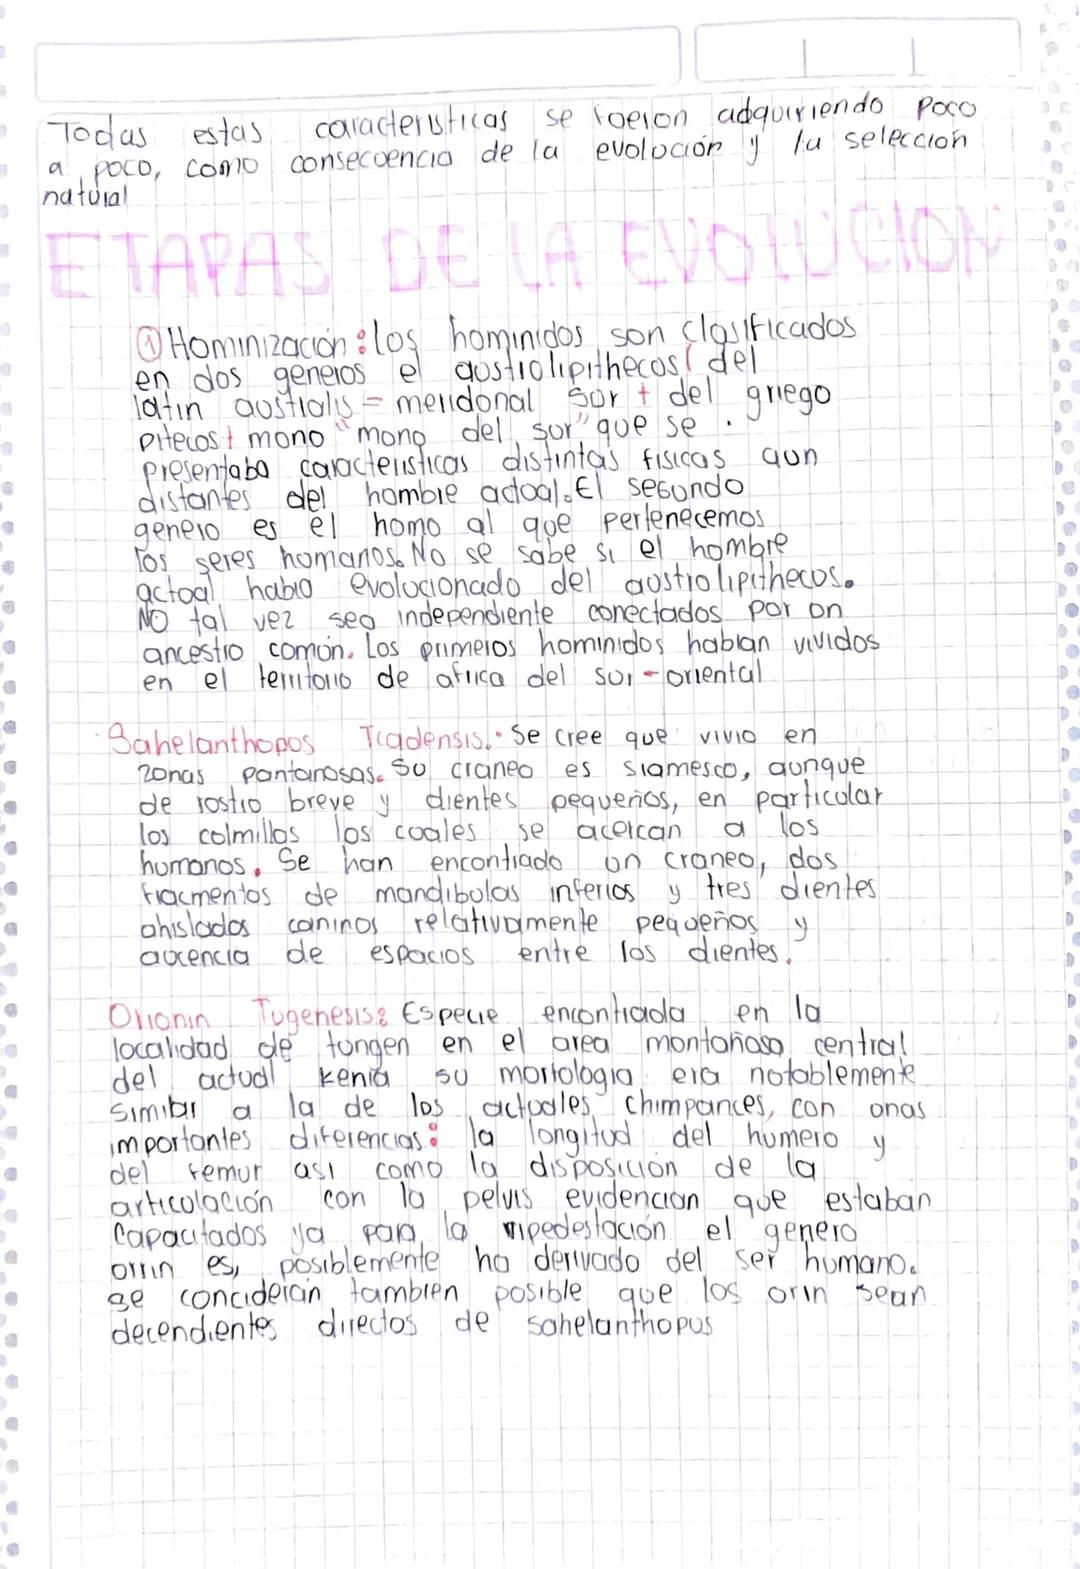 Todas estas caracteristicas se fueron adquiriendo poco
a poco, como consecuencia de la evolución y la selección
natural
ETAPAS DE LA EVOLUCION
① Hominización: los hominidos son clasificados
en dos generos el austrolipithecos( del
latin australis = meridonal sur + del griego
pitecos + mono "mono del sur" que se .
presentaba caracteristicas distintas fisicas aun
distantes del hombre actual. El segundo
genero es el homo al que pertenecemos
los seres humanos. No se sabe si el hombre
actual habia evolucionado del austrolipithecos.
NO tal vez sea independiente conectados por un
ancestro común. Los primeros hominidos habian vividos
en el territorio de africa del sur-oriental
Sahelanthopus Tcadensis: Se cree que vivio en
zonas pantanosas. Su craneo es siamesco, aunque
de rostro breve y dientes pequeños, en particular
los colmillos los cuales se acercan a los
humanos. Se han encontrado un craneo, dos
fracmentos de mandibulas inferios y tres dientes
ahislados caninos relativamente pequeños y
aucencia de espacios entre los dientes.
Orionin Tugenesis: Especie encontrada en la
localidad de tungen en el area montañosa central
del actual kenia su morfologia era notablemente
similar a la de los actuales chimpances, con unas
importantes diferencias: la longitud del humero y
del femur asi como la disposición de la
articolación con la pelvis evidencian que estaban
capacitados ya para la vipedestación el genero
orrin es, posiblemente ha derivado del ser humano.
se conciderán tambien posible que los orin sean
decendientes directos de sahelanthopus